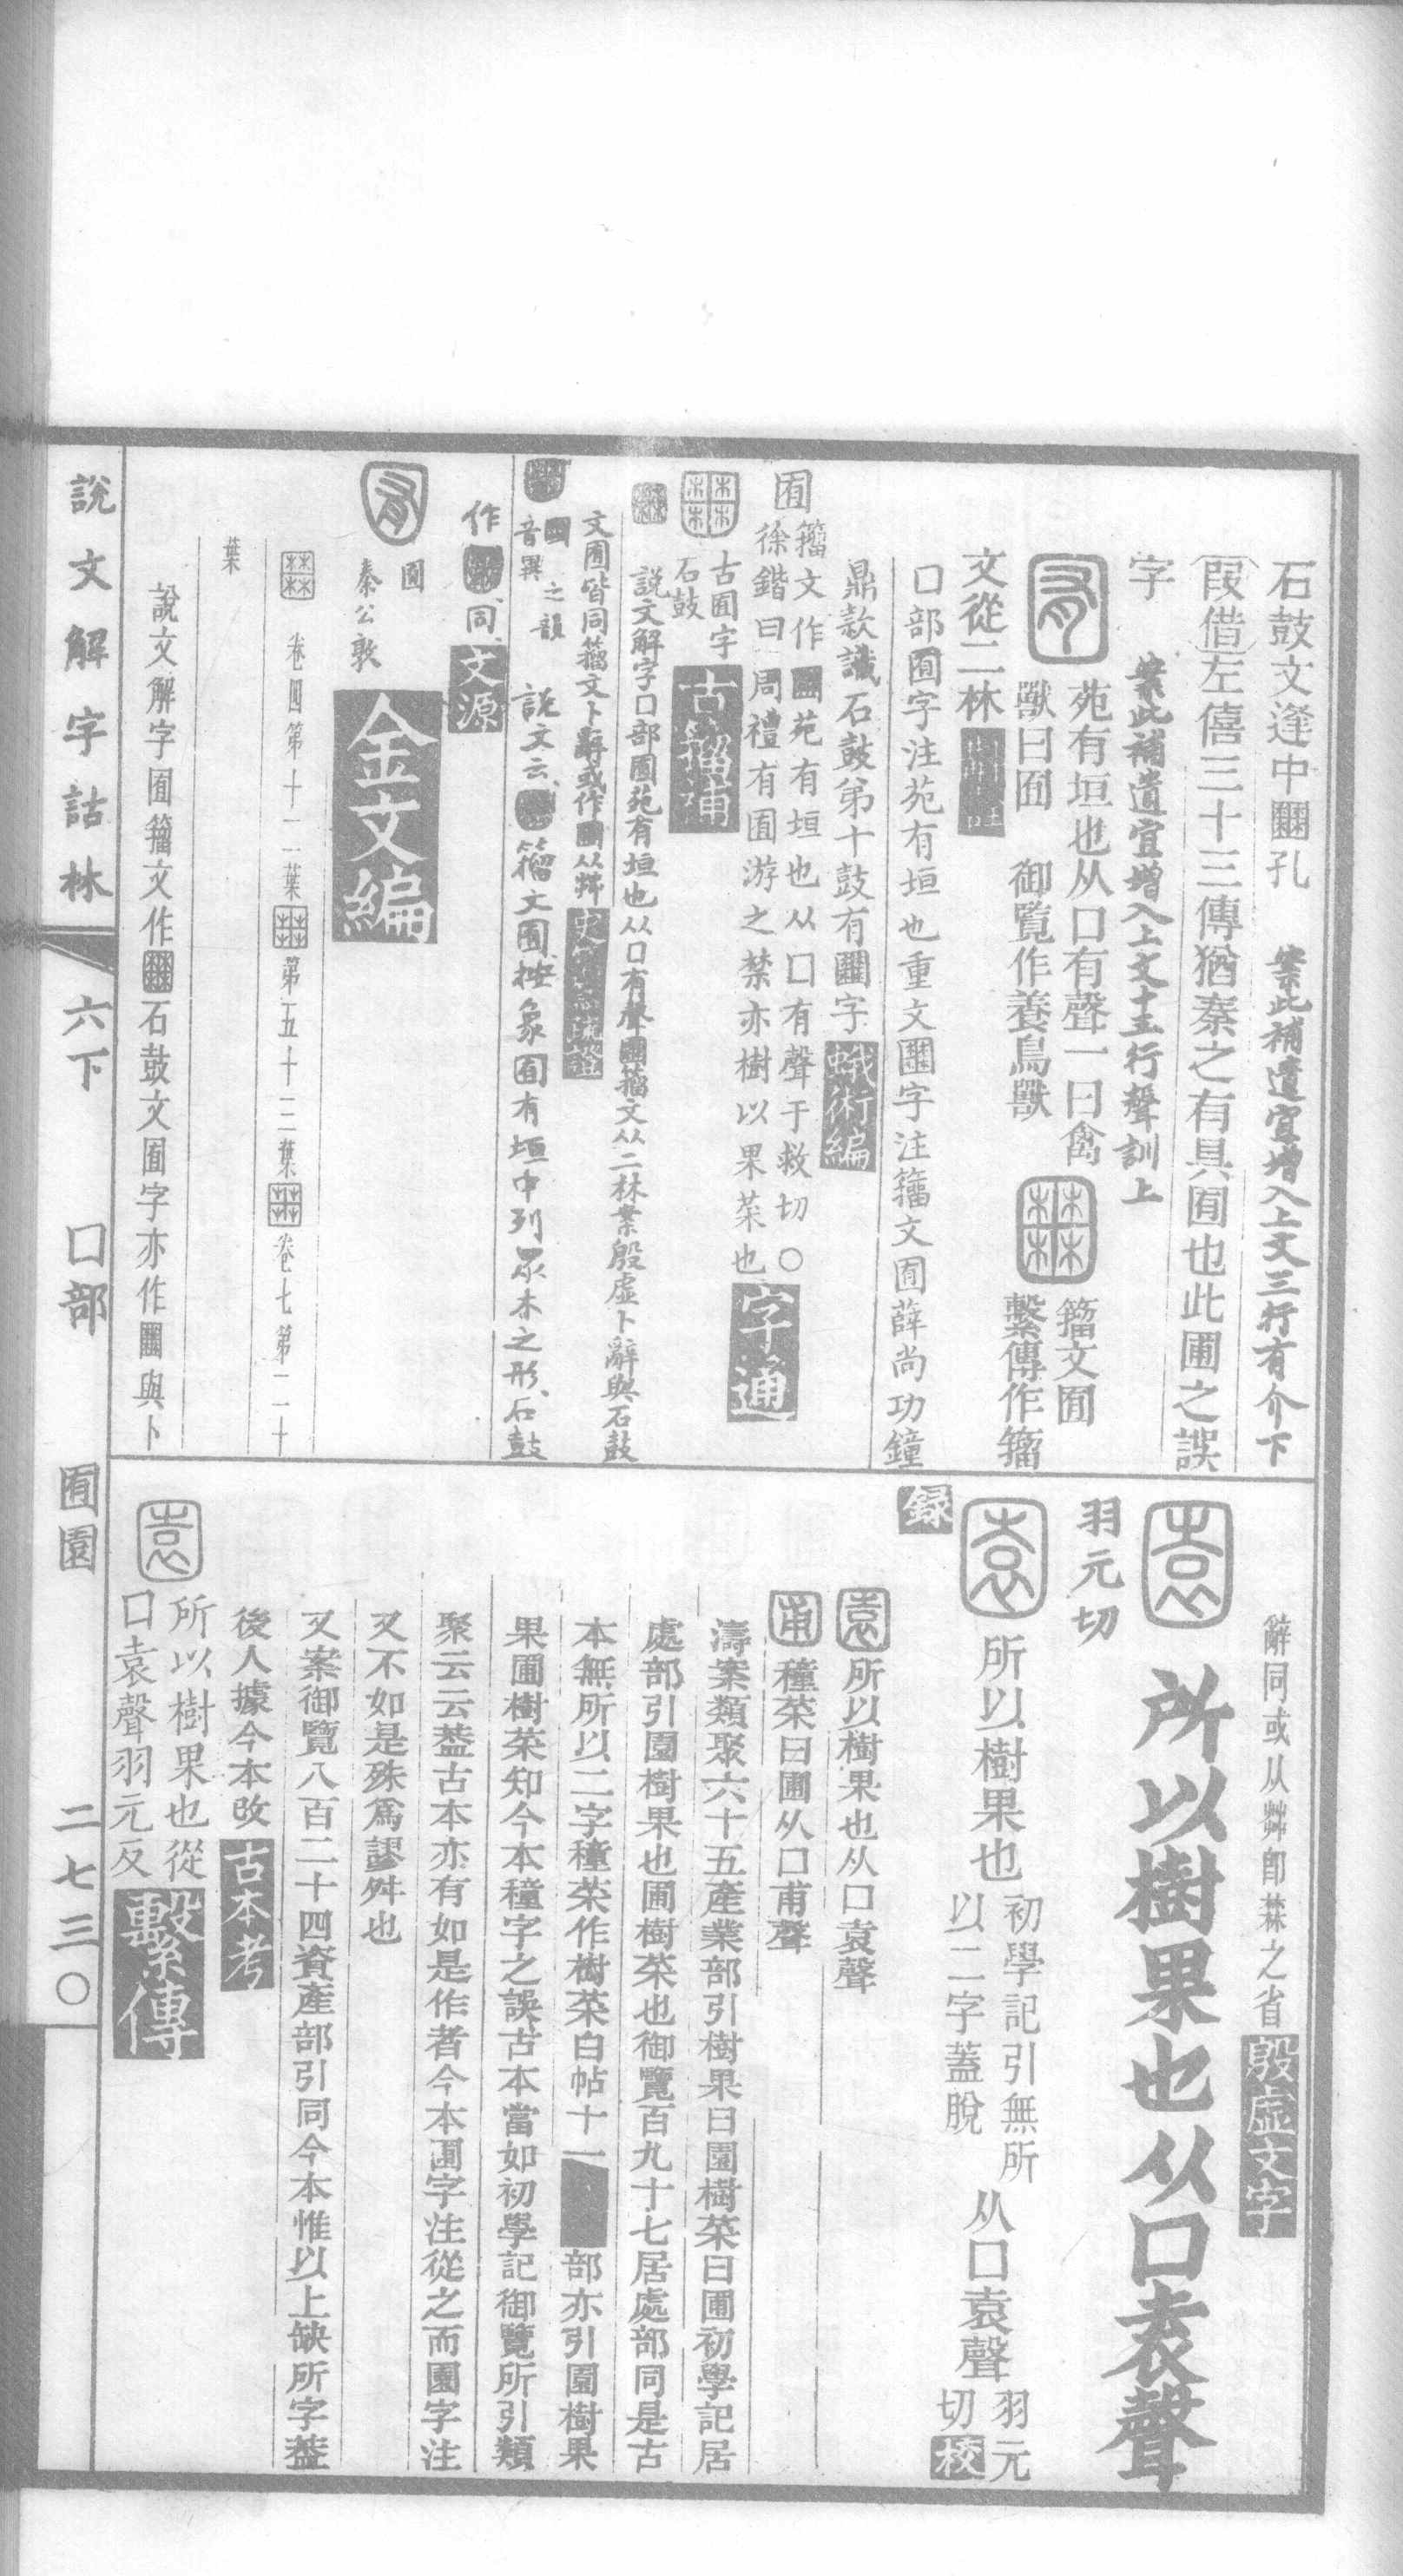 石鼓文逢中𡈹孔 案此補遺宜增入上文三行有介下
叚借左僖三十三傳猶秦之有具囿也此圃之誤
字 案此補遺宜增入上文十五行聲訓上
苑有垣也从囗有聲一曰禽
獸曰囿 御覽作養鳥獸
籀文囿
繫傳作籀
文從二林
囗部囿字注苑有垣也重文𡈹字注籀文囿薛尚功鐘
鼎款識石鼓弟十鼓有𡈹字 蛾術編
囿 籀文作𡈹苑有垣也从囗有聲于救切〇
徐鍇曰周禮有囿游之禁亦樹以果菜也 字通
𡈹 古囿字
石鼓 古籀補
𡈹 說文解字囗部囿苑有垣也从囗有聲𡈹籀文从二林案殷虛卜辭與石鼓
文囿皆同籀文卜辭或作𡈹从茻 史籀篇疏證
說文云𡈹籀文囿按象囿有垣中列眾木之形石鼓
作𡈹同 文源
囿
秦公敦 金文編
𡈹 卷四第十二葉𡈹第五十三葉𡈹卷七第二十
葉
說文解字囿籀文作𡈹石鼓文囿字亦作𡈹與卜
辭同或从艸卽茻之省 殷虛文字
園 所以樹果也从囗袁聲
羽元切
園 所以樹果也 初學記引無所
以二字蓋脫 从囗袁聲 羽元
切 校
錄
園所以樹果也从囗袁聲
圃種菜曰圃从囗甫聲
濤案類聚六十五產業部引樹果曰園樹菜曰圃初學記居
處部引園樹果也圃樹菜也御覽百九十七居處部同是古
本無所以二字種菜作樹菜白帖十一 部亦引園樹果
果圃樹菜知今本種字之誤古本當如初學記御覽所引類
聚云云蓋古本亦有如是作者今本圃字注從之而園字注
又不如是殊爲謬舛也
又案御覽八百二十四資產部引同今本惟以上缺所字蓋
後人據今本改 古本考
園 所以樹果也從
囗袁聲羽元反 繫傳
說文解字詁林 六下 囗部 囿園 二七三〇